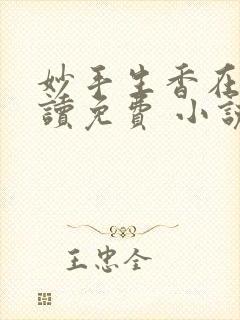 妙手生香在
讀免費 小說
王忠全